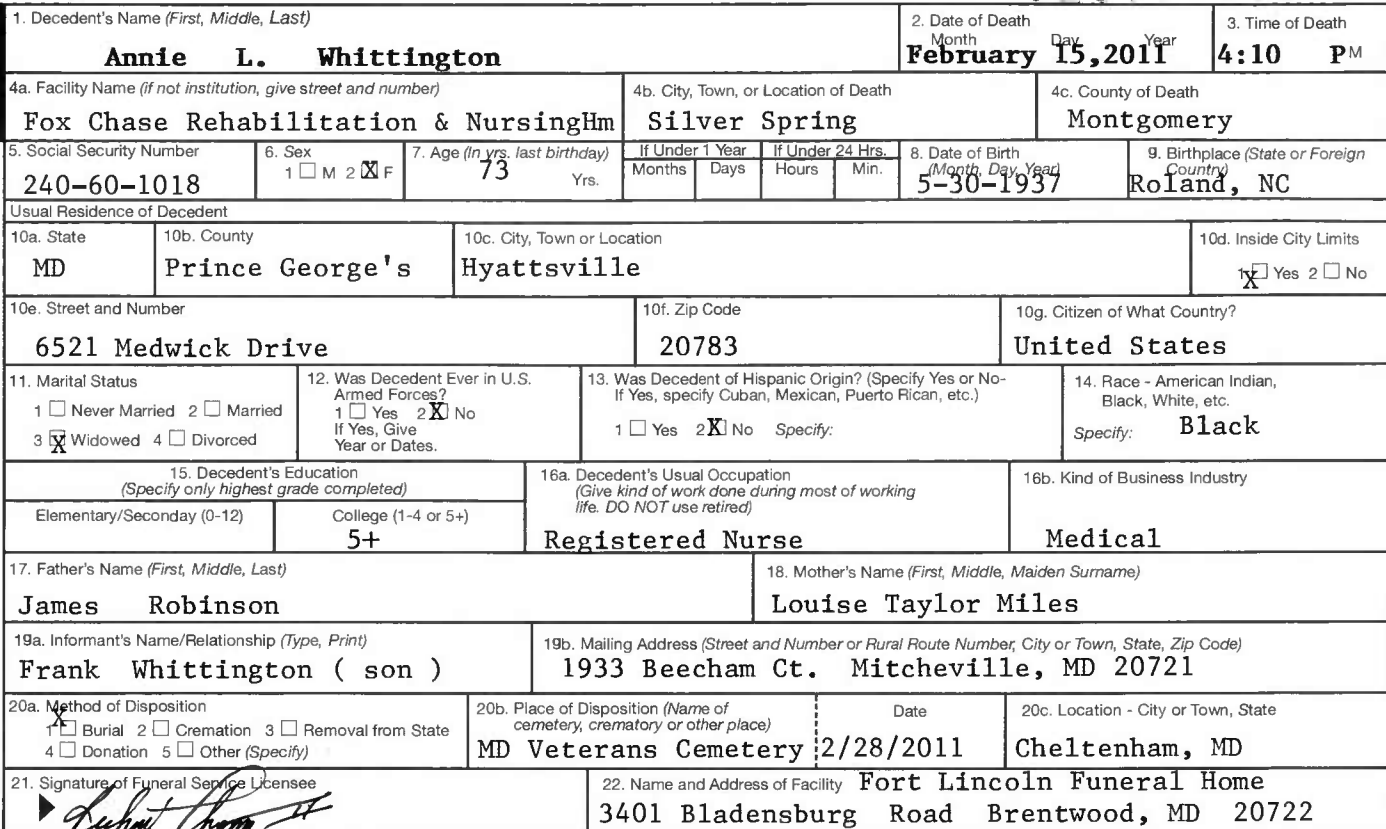 1. Decedent's Name (First, Middle, Last)
Annie L. Whittington
2. Date of Death
Month Day Year
February 15,2011
3. Time of Death
4:10 PM
4a. Facility Name (if not institution, give street and number)
Fox Chase Rehabilitation & NursingHm
4b. City, Town, or Location of Death
Silver Spring
4c. County of Death
Montgomery
5. Social Security Number
240-60-1018
6. Sex
1 ☐ M 2 ☒ F
7. Age (In yrs. last birthday)
73 Yrs.
If Under 1 Year
Months Days
If Under 24 Hrs.
Hours Min.
8. Date of Birth
(Month, Day, Year)
5-30-1937
9. Birthplace (State or Foreign
Country)
Roland, NC
Usual Residence of Decedent
10a. State
MD
10b. County
Prince George's
10c. City, Town or Location
Hyattsville
10d. Inside City Limits
1 ☒ Yes 2 ☐ No
10e. Street and Number
6521 Medwick Drive
10f. Zip Code
20783
10g. Citizen of What Country?
United States
11. Marital Status
1 ☐ Never Married 2 ☐ Married
3 ☒ Widowed 4 ☐ Divorced
12. Was Decedent Ever in U.S.
Armed Forces?
1 ☐ Yes 2 ☒ No
If Yes, Give
Year or Dates.
13. Was Decedent of Hispanic Origin? (Specify Yes or No-
If Yes, specify Cuban, Mexican, Puerto Rican, etc.)
1 ☐ Yes 2 ☒ No Specify:
14. Race - American Indian,
Black, White, etc.
Specify: Black
15. Decedent's Education
(Specify only highest grade completed)
Elementary/Seconday (0-12)
College (1-4 or 5+)
5+
16a. Decedent's Usual Occupation
(Give kind of work done during most of working
life. DO NOT use retired)
Registered Nurse
16b. Kind of Business Industry
Medical
17. Father's Name (First, Middle, Last)
James Robinson
18. Mother's Name (First, Middle, Maiden Surname)
Louise Taylor Miles
19a. Informant's Name/Relationship (Type, Print)
Frank Whittington ( son )
19b. Mailing Address (Street and Number or Rural Route Number, City or Town, State, Zip Code)
1933 Beecham Ct. Mitcheville, MD 20721
20a. Method of Disposition
1 ☒ Burial 2 ☐ Cremation 3 ☐ Removal from State
4 ☐ Donation 5 ☐ Other (Specify)
20b. Place of Disposition (Name of
cemetery, crematory or other place)
MD Veterans Cemetery
Date
2/28/2011
20c. Location - City or Town, State
Cheltenham, MD
21. Signature of Funeral Service Licensee
22. Name and Address of Facility Fort Lincoln Funeral Home
3401 Bladensburg Road Brentwood, MD 20722